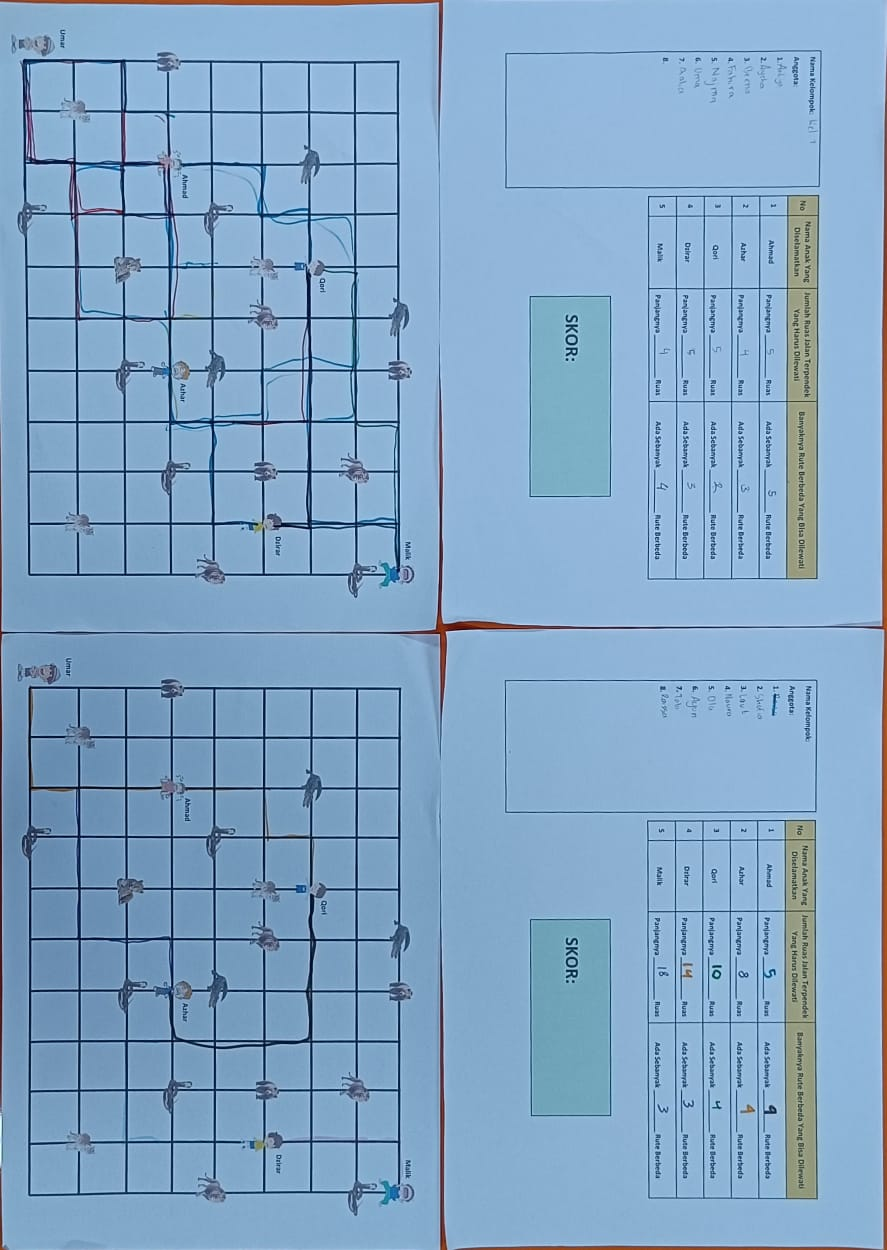 Umar
Ahmad
Qori
Azhar
Dzirar
Malik
Nama Kelompok: kel 1
Anggota:
1.
2. Aysha
3.
4. Fahira
5. Najma
6. Uma
7.
8.
No Nama Anak Yang Diselamatkan Jumlah Ruas Jalan Terpendek Yang Harus Dilewati Banyaknya Rute Berbeda Yang Bisa Dilewati
1 Ahmad Panjangnya 5 Ruas Ada Sebanyak 5 Rute Berbeda
2 Azhar Panjangnya 4 Ruas Ada Sebanyak 3 Rute Berbeda
3 Qori Panjangnya 5 Ruas Ada Sebanyak 2 Rute Berbeda
4 Dzirar Panjangnya 5 Ruas Ada Sebanyak 3 Rute Berbeda
5 Malik Panjangnya 4 Ruas Ada Sebanyak 4 Rute Berbeda
SKOR:
Umar
Ahmad
Qori
Azhar
Dzirar
Malik
Nama Kelompok:
Anggota:
1.
2.
3.
4.
5.
6.
7.
8.
No Nama Anak Yang Diselamatkan Jumlah Ruas Jalan Terpendek Yang Harus Dilewati Banyaknya Rute Berbeda Yang Bisa Dilewati
1 Ahmad Panjangnya 5 Ruas Ada Sebanyak 9 Rute Berbeda
2 Azhar Panjangnya 8 Ruas Ada Sebanyak 4 Rute Berbeda
3 Qori Panjangnya 10 Ruas Ada Sebanyak 4 Rute Berbeda
4 Dzirar Panjangnya 14 Ruas Ada Sebanyak 3 Rute Berbeda
5 Malik Panjangnya 18 Ruas Ada Sebanyak 3 Rute Berbeda
SKOR: